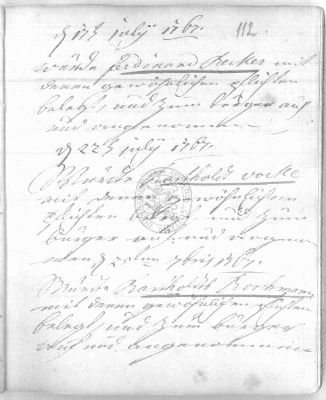 d 17t july 1767. 112.
wurde Ferdinand Becker mit
denen gewöhnlichen pflichten
belegt, und zum bürger auf
und angenommen
d 22t july 1767.
Wurde Bartholdt
mit denen gewöhnlichen
pflichten belegt und zum
bürger auf und angenom
men d 7bris 1767.
Wurde Bartholdt
mit denen gewöhnlichen pflichten
belegt, und zum bürger
auf und angenommen